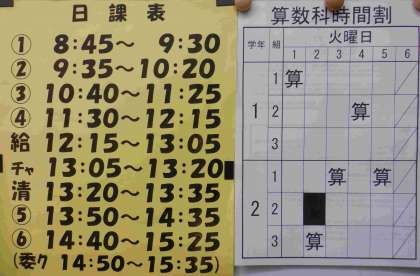 日課表
① 8:45～ 9:30
② 9:35～10:20
③ 10:40～11:25
④ 11:30～12:15
給 12:15～13:05
チャ 13:05～13:20
清 13:20～13:35
⑤ 13:50～14:35
⑥ 14:40～15:25
(委ク 14:50～15:35)
算数科時間割
学年 組 火曜日
1 2 3 4 5 6
1 1 算
2 算
3
2 1 算 算
2
3 算